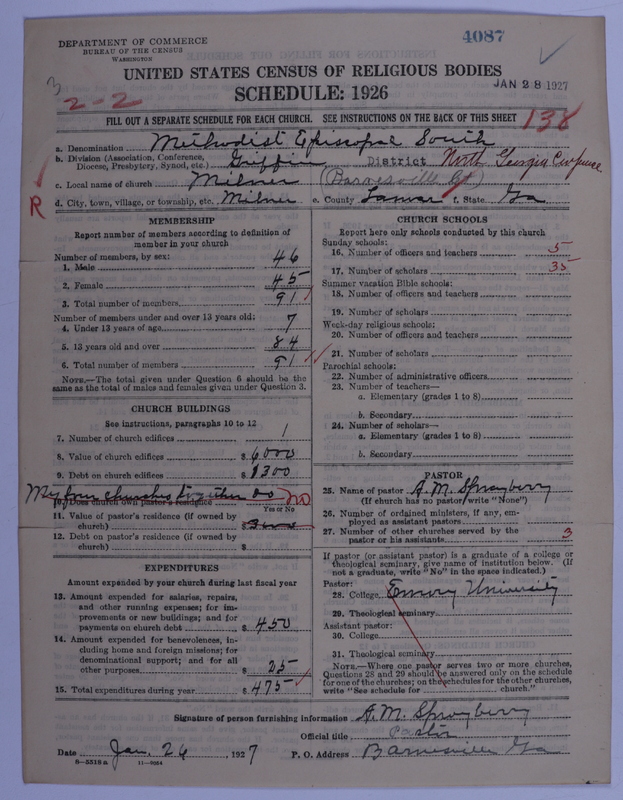 4087
DEPARTMENT OF COMMERCE
BUREAU OF THE CENSUS
WASHINGTON
UNITED STATES CENSUS OF RELIGIOUS BODIES
JAN 28 1927
SCHEDULE: 1926
3
2-2
FILL OUT A SEPARATE SCHEDULE FOR EACH CHURCH. SEE INSTRUCTIONS ON THE BACK OF THIS SHEET
138
a. Denomination Methodist Episcopal South
b. Division (Association, Conference, Diocese, Presbytery, Synod, etc.) Griffin District North Georgia Conference
c. Local name of church Milner (Barnesville Ct)
R
d. City, town, village, or township, etc. Milner e. County Lamar f. State Ga
MEMBERSHIP
Report number of members according to definition of
member in your church
Number of members, by sex:
1. Male 46
2. Female 45
3. Total number of members 91
Number of members under and over 13 years old:
4. Under 13 years of age 7
5. 13 years old and over 84
6. Total number of members 91
NOTE.—The total given under Question 6 should be the
same as the total of males and females given under Question 3.
CHURCH BUILDINGS
See instructions, paragraphs 10 to 12
7. Number of church edifices 1
8. Value of church edifices $ 6000
9. Debt on church edifices $ 1300
My four churches together do no
10. Does church own pastor's residence
Yes or No
11. Value of pastor's residence (if owned by
church) $ 3000
12. Debt on pastor's residence (if owned by
church) $
EXPENDITURES
Amount expended by your church during last fiscal year
13. Amount expended for salaries, repairs,
and other running expenses; for im-
provements or new buildings; and for
payments on church debt $ 450
14. Amount expended for benevolences, in-
cluding home and foreign missions; for
denominational support; and for all
other purposes $ 25
15. Total expenditures during year $ 475
CHURCH SCHOOLS
Report here only schools conducted by this church
Sunday schools:
16. Number of officers and teachers 5
17. Number of scholars 35
Summer vacation Bible schools:
18. Number of officers and teachers
19. Number of scholars
Week-day religious schools:
20. Number of officers and teachers
21. Number of scholars
Parochial schools:
22. Number of administrative officers
23. Number of teachers—
a. Elementary (grades 1 to 8)
b. Secondary
24. Number of scholars—
a. Elementary (grades 1 to 8)
b. Secondary
PASTOR
25. Name of pastor A. M. Sprayberry
(If church has no pastor, write "None")
26. Number of ordained ministers, if any, em-
ployed as assistant pastors
27. Number of other churches served by the
pastor or his assistants 3
If pastor (or assistant pastor) is a graduate of a college or
theological seminary, give name of institution below. (If
not a graduate, write "No" in the space indicated.)
Pastor:
28. College Emory University
29. Theological seminary
Assistant pastor:
30. College
31. Theological seminary
NOTE.—Where one pastor serves two or more churches,
Questions 28 and 29 should be answered only on the schedule
for one of the churches; on the schedules for the other churches,
write "See schedule for church."
Signature of person furnishing information A. M. Sprayberry
Official title Pastor
Date Jan. 26, 1927 P. O. Address Barnesville Ga
8—5518a 11—9084